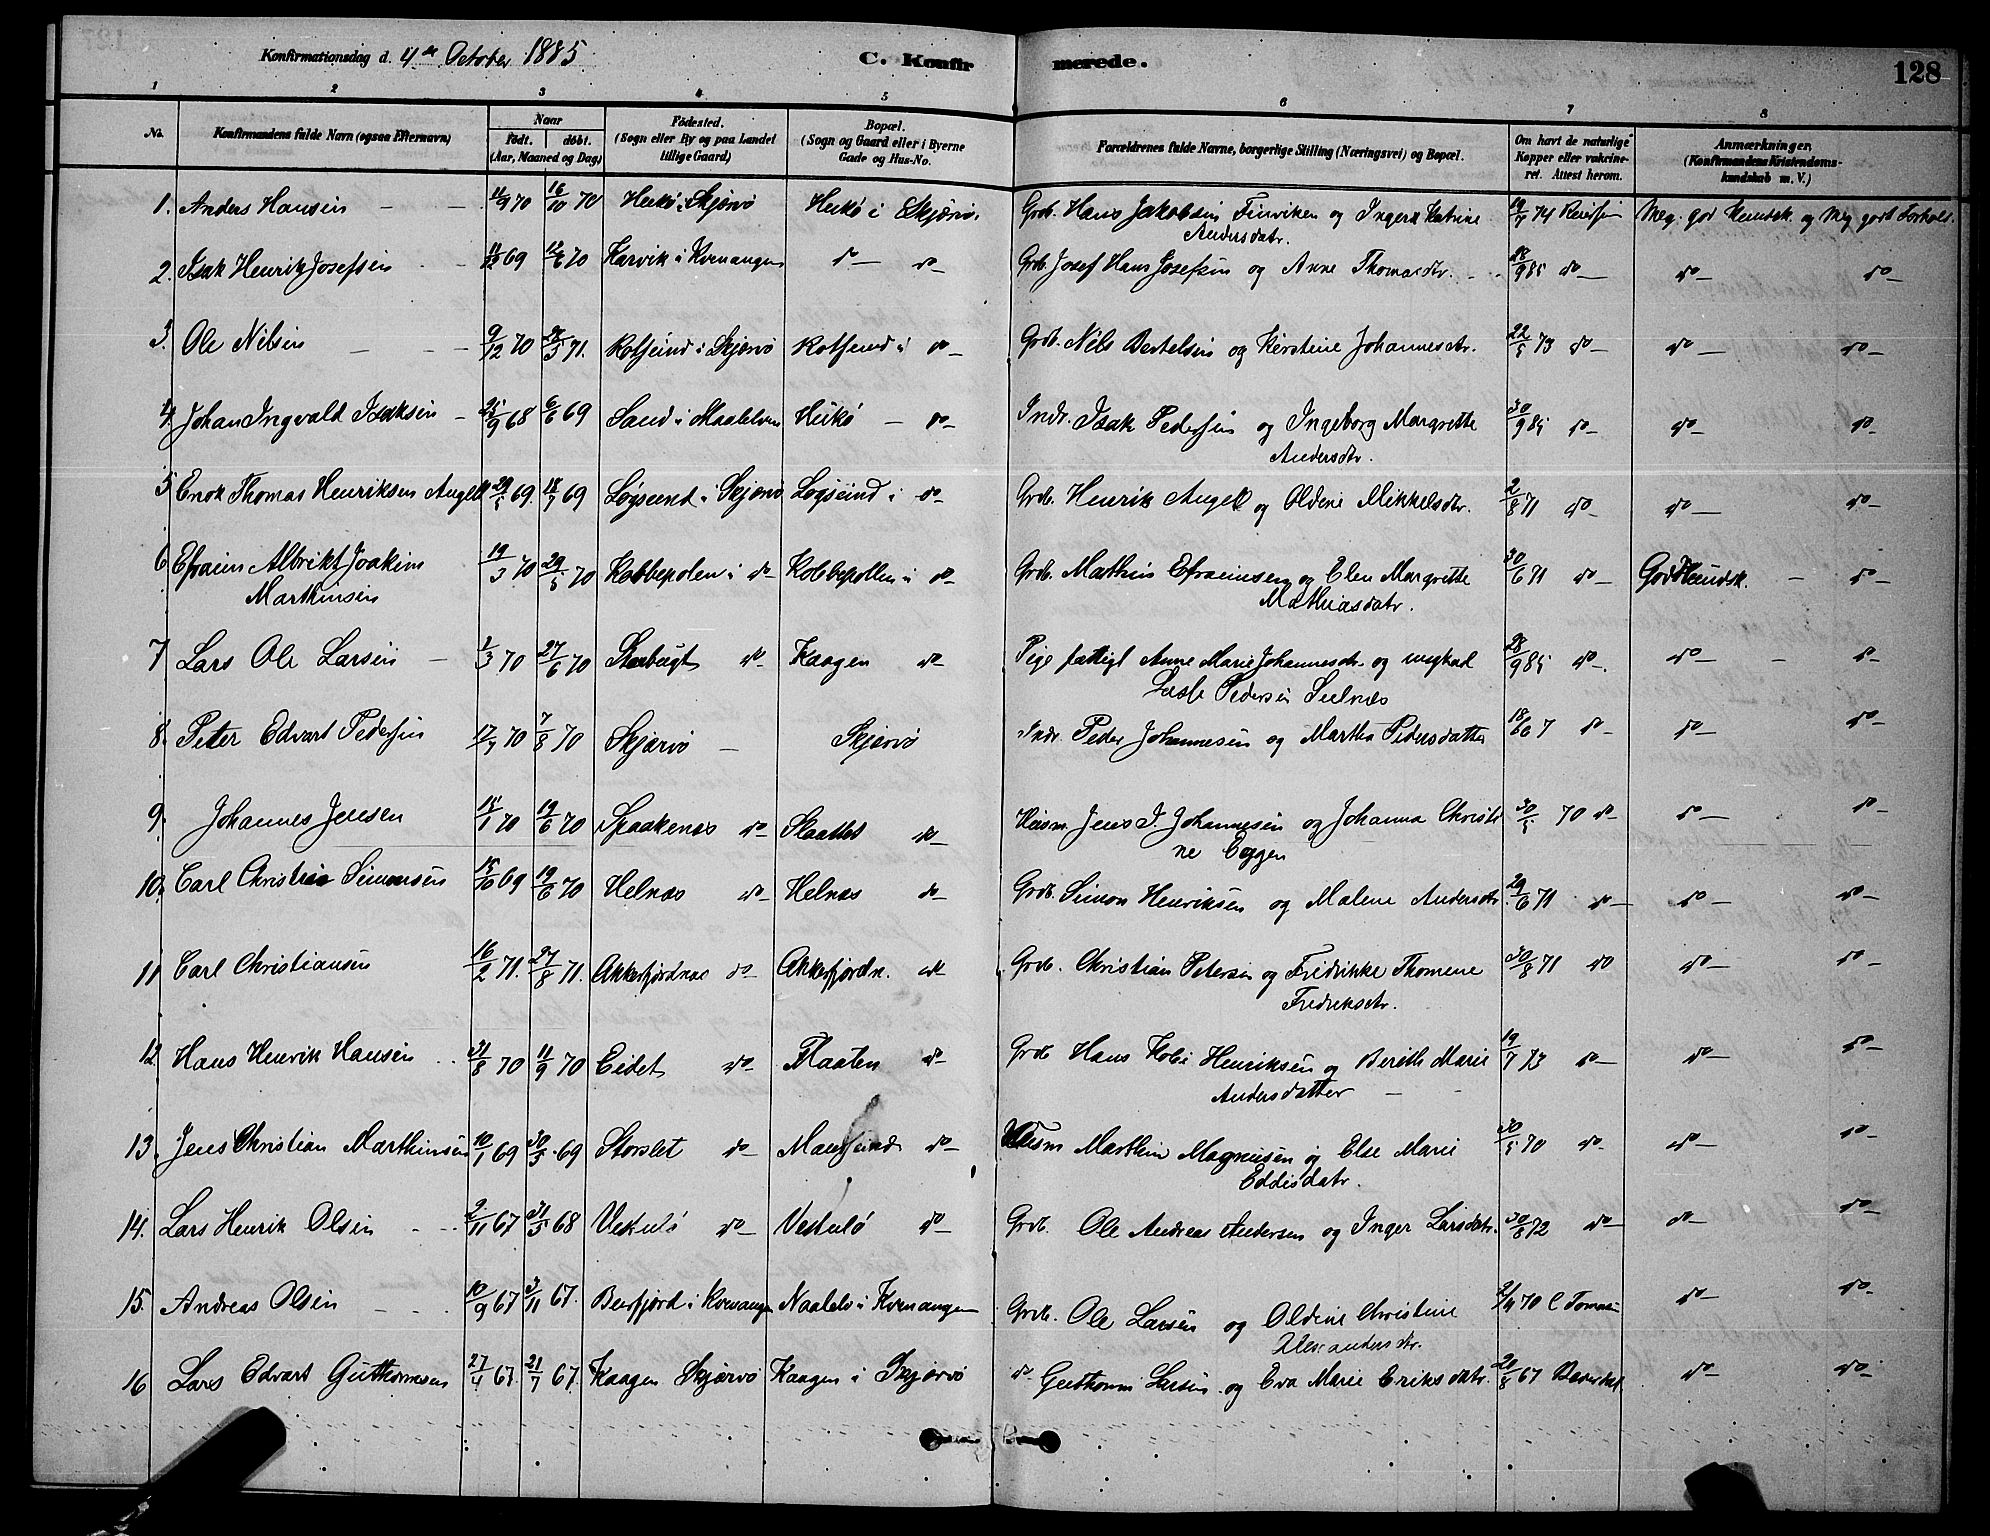 Konfirmationsdag d. 4de October 1885. C. Konfirmerede. 128
1 2 3 4 5 6 7 8
No. Konfirmandens fulde Navn (ogsaa Efternavn) Naar født. døbt. (Aar, Maaned og Dag) Fødested. (Sogn eller By og paa Landet tillige Gaard) Bopæl. (Sogn og Gaard eller i Byerne Gade og Hus-No. Forældrenes fulde Navne, borgerlige Stilling (Næringsvei) og Bopæl. Om havt de naturlige Kopper eller vakcineret. Attest herom. Anmærkninger, (Konfirmandens Kristendomskundskab m. V.)
1. Anders Hansen 4/9 70 16/10 70 Hukø i Skjærvø Hukø i Skjærvø. Grdb. Hans Jakobsen Finviken og Inger Katrine 19/7 74 Meg. god Kundsk. og Meg god Forhold.
Andersdatr.
2. Isak Henrik Josefsen 11/12 69 12/6 70 Karvik i Kvenangen do do Grdb. Josef Hans Josefsen og Anne Thomasdtr. 28/9 85 do do do
3. Ole Nilsen 9/12 70 28/3 71. Rotsund i Skjærvø Rotsund i do Grdb. Nils Bertelsen og Kirstine Johannesdtr. 22/5 73 do do do
4. Johan Ingvald Isaksen 25/9 68 6/6 69 Sand i Maalselven Hukø do Indr. Isak Pedersen og Ingeborg Margrette 30/9 85 do do do
Andersdtr.
5 Enok Thomas Henriksen Angell 29/5 69. 18/7 69 Løgsund i Skjærvø Løgsund i do Grdb. Henrik Angell og Oldine Mikkelsdtr. 2/8 71 do do do
6 Efraim Albrikt Joakim 19/3 70 29/5 70 Kobbepolen i do Kobbepollen i do Grdb. Marthin Efraimsen og Elen Margrette 30/6 71 do God Kundsk. do
Marthinsen Mathiasdatr.
7 Lars Ole Larsen 1/3 70 27/6 70 Storbugt do Kaagen do Pige fattigl Anne Marie Johannesdtr og ungkarl 28/9 85 do do do
Pedersen
8. Peter Edvart Pedersen 17/7 70 7/8 70 Skjærvø Skjærvø Indr. Peder Johannesen og Martha Pedersdatter 18/6 67 do do do
9. Johannes Jensen 15/1 70 19/6 70 Spaakenæs do Slaattet do Husm. Jens I. Johannesen og Johanna Christi 30/5 70 do do do
ne Eggen
10. Carl Christian Simonsen 15/10 69 19/6 70 Helnæs do Helnæs do Grdb. Simon Henriksen og Malene Andersdtr 29/6 71 do do do
11 Carl Christiansen 16/2 71. 27/8 71. Akkerfjordnæs do Akkerfjordn. do Grdb. Christian Petersen og Fredrikke Thomine 30/8 71 do do do
Fredriksdtr.
12 Hans Henrik Hansen 31/8 70 11/9 70 Eidet do Flaaten do Grdb Hans Henriksen og Berith Marie 19/7 73 do do do
Andersdatter
13. Jens Christian Marthinsen 10/1 69 30/5 69 Storslet do Maursund do Husm Marthin Magnusen og Else Marie 30/5 70 do do do
Eddisdatr.
14. Lars Henrik Olsen 2/11 67 31/5 68 do do Grdb. Ole Andreas Andersen og Inger Larsdatr. 30/8 72 do do do
15. Andreas Olsen 10/9 67 3/11 67. i Kvenangen i Kvenangen Grdb. Ole Larsen og Oldine Christine 2/4 70 do do
Alexandersdtr.
16 Lars Edvart Guttormsen 27/4 67 21/7 67. Kaagen Skjærvø Kaagen i Skjærvø do Guthorm Larsen og Eva Marie Eriksdatr. 20/8 67 do do